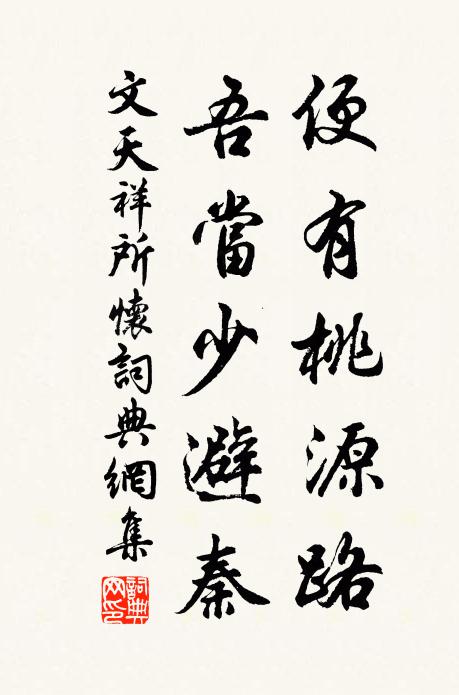 便有桃源路
吾當少避秦
文天祥所懷詞典網集
詞典网印